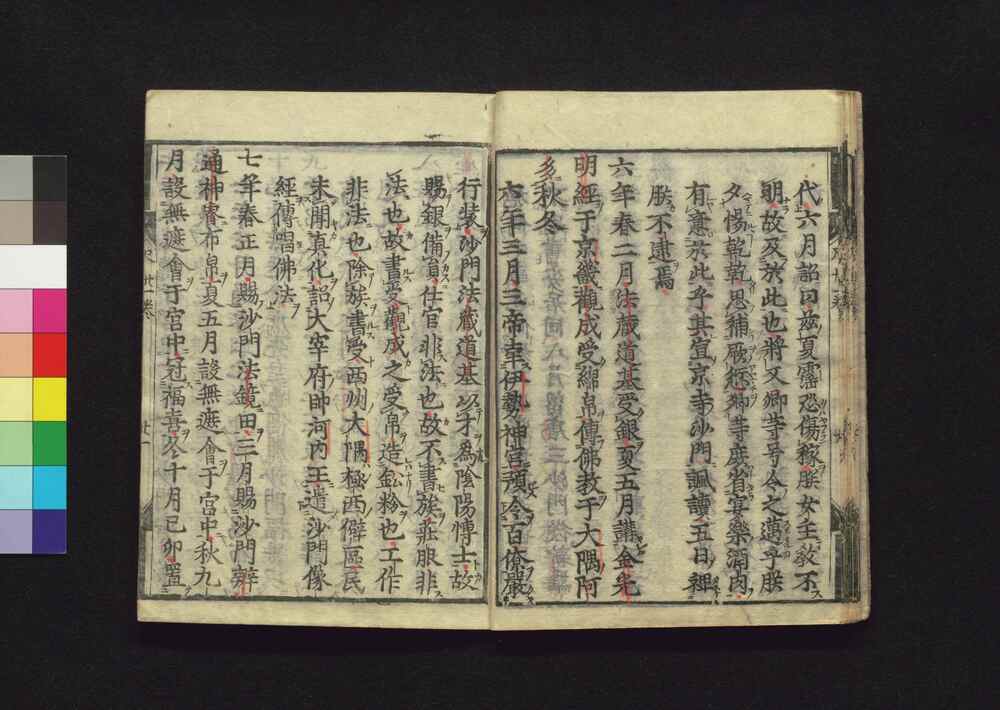 代六月詔曰茲夏霪恐傷稼朕女主敎不
明故及於此也將又卿等号令之邁乎朕
夕惕乾乾思補厥愆卿等庶省宴樂酒肉
有意於此乎其宜京寺沙門諷讀五日經
朕不逮焉
六年春二月法藏道基受銀夏五月講金光
明經于京畿觀成受綿帛傳佛教于大隅阿
多秋冬
六年三月三帝幸伊勢神宮預令百僚嚴
行裝沙門法藏道基以才爲陰陽博士故
賜銀備資仕官非法也故不書族莊服非
法也故書受觀成之受帛造鈆粉也工作
非法也除族書受西州大隅極西僻區民
未聞眞化詔大宰府帥河內王遣沙門像
經傳唱佛法
七年春正月賜沙門法鏡田三月賜沙門辨
通神睿布帛夏五月設無遮會于宮中秋九
月設無遮會于宮中冠福喜冬十月己卯置
廿一